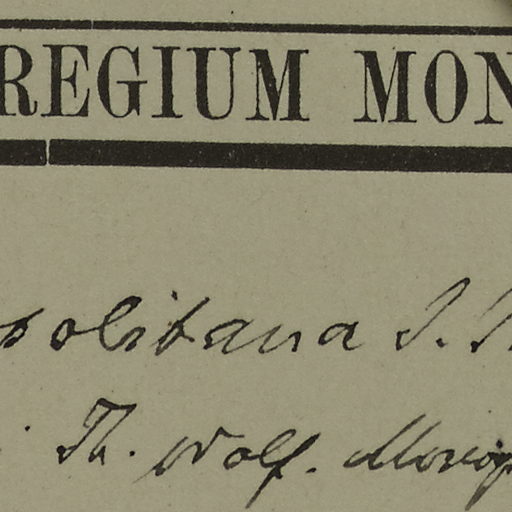 REGIUM MON
solitana J.
Th. Wolf.